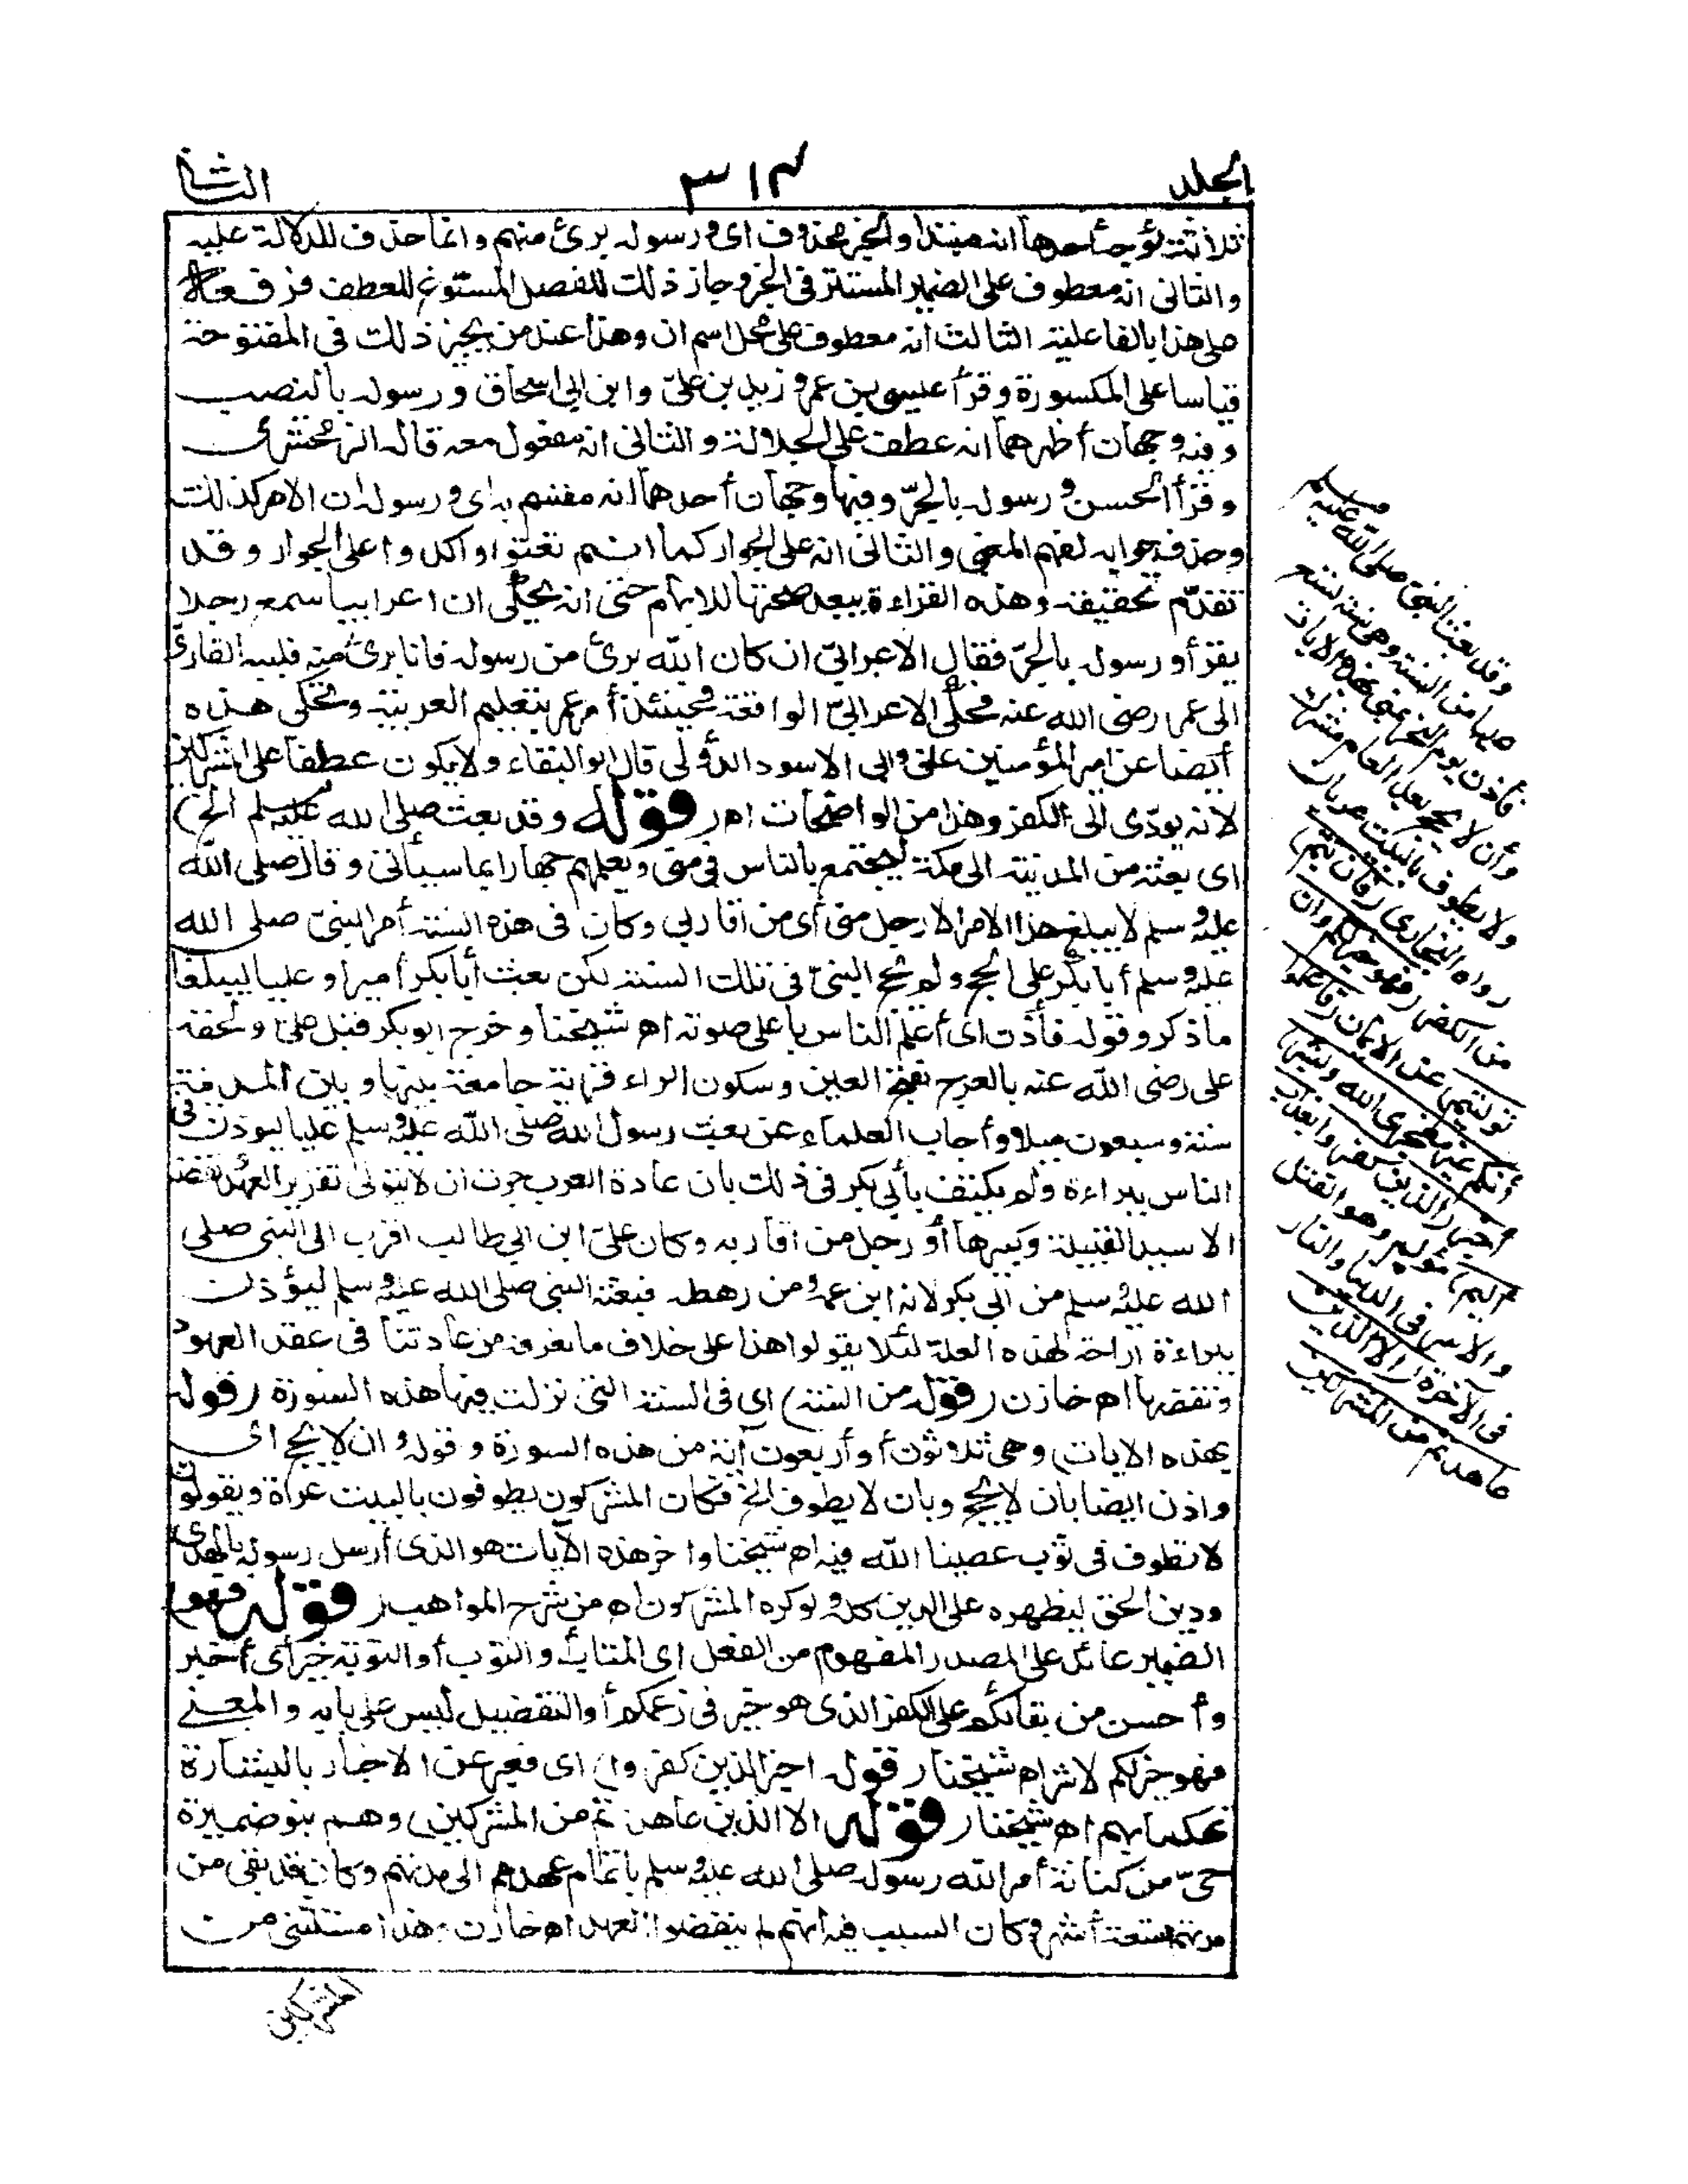 الجلد
٣١٣
الثانى
ثلاثة أوجه أحدها انه مبتدا والخبر محذوف اى ورسوله برئ منهم وانما حذف للدلالة عليه
والثانى انه معطوف على الضمير المستتر فى الخبر وجاز ذلك للفصل المسوّغ للعطف فرفعه
على هذا بالفاعلية الثالث انه معطوف على محل اسم ان وهذا عند من يجيز ذلك فى المفتوحة
قياسا على المكسورة وقرأ عيسى بن عمر وزيد بن علىّ وابن ابى اسحاق ورسوله بالنصب
وفيه وجهان أظهرهما انه عطف على الجلالة والثانى انه مفعول معه قاله الزمخشرى
وقرأ الحسن ورسوله بالجرّ وفيها وجهان أحدها انه مقسم به اى ورسوله ان الامر كذلك
وحذف جوابه لفهم المعنى والثانى انه على الجوار كما انهم نعتوا واكدوا على الجوار وقد
تقدّم تحقيقه وهذه القراءة يبعد صحتها للايهام حتى انه يحكى ان اعرابيا سمع رجلا
يقرأ ورسوله بالجرّ فقال الاعرابىّ ان كان الله برئ من رسوله فانا برئ منه فلببه القارئ
الى عمر رضى الله عنه فحكى الاعرابىّ الواقعة فحينئذ أمر عمر بتعليم العربية وتحكى هذه
أيضا عن امير المؤمنين علىّ وابى الاسود الدؤلى قال ابو البقاء ولا يكون عطفا على المشركين
لانه يودّى الى الكفر وهذا من الواضحات اهـ (قوله وقد بعث صلى الله عليه وسلم الخ)
اى بعثه من المدينة الى مكة ليجتمع بالناس فى منى ويعلمهم جهارا بما سيأتى وقال صلى الله
عليه وسلم لا يبلغ هذا الامر الا رجل منى أى من أقاربى وكان فى هذه السنة أمر النبىّ صلى الله
عليه وسلم أبا بكر على الحج ولم يحج النبىّ فى تلك السنة لكن بعث أبا بكر أميرا وعليا ليبلغا
ما ذكر وقوله فأذن اى أعلم الناس باعلى صوته اهـ شيخنا وخرج ابو بكر قبل علىّ ولحقه
على رضى الله عنه بالعرج بفتح العين وسكون الراء قرية جامعة بينها وبين المدينة
ستة وسبعون ميلا وأجاب العلماء عن بعث رسول الله صلى الله عليه وسلم عليا ليوذن فى
الناس ببراءة ولم يكتف بأبى بكر فى ذلك بان عادة العرب جرت ان لا يتولى تقرير العهد ونقضه
الا سيد القبيلة وكبيرها أو رجل من أقاربه وكان علىّ ابن ابى طالب اقرب الى النبى صلى
الله عليه وسلم من ابى بكر لانه ابن عمه ومن رهطه فبعثه النبى صلى الله عليه وسلم ليؤذن
ببراءة ازاحة لهذه العلة لئلا يقولوا هذا على خلاف ما نعرفه من عادتنا فى عقد العهود
ونقضها اهـ خازن (قوله من السنة) اى فى السنة التى نزلت فيها هذه السورة (قوله
بهذه الايات) وهى ثلاثون أو أربعون آية من هذه السورة وقوله وان لا يحج اى
واذن ايضا بان لا يحج وبان لا يطوف الخ فكان المشركون يطوفون بالبيت عراة ويقولون
لا نطوف فى ثوب عصينا الله فيه اهـ شيخنا واخر هذه الآيات هو الذى أرسل رسوله بالهدى
ودين الحق ليظهره على الدين كله ولو كره المشركون اهـ من شرح المواهب (قوله فهو)
الضمير عائد على المصدر المفهوم من الفعل اى المتاب والتوب أو التوبة خير أى أخير
وأحسن من بقائكم على الكفر الذى هو خير فى زعمكم أو التفضيل ليس على بابه والمعنى
فهو خير لكم لا شر اهـ شيخنا (قوله اخبر الذين كفروا) اى فعبر عن الاخبار بالبشارة
تهكما بهم اهـ شيخنا (قوله الا الذين عاهدتم من المشركين) وهم بنو ضميرة
حىّ من كنانة أمر الله رسوله صلى الله عليه وسلم باتمام عهدهم الى مدتهم وكان قد بقى من
مدتهم تسعة أشهر وكان السبب فيه انهم لم ينقضوا العهد اهـ خازن وهذا مستثنى من
المشركين
وقد بعث النبى صلى الله عليه وسلم
عليا من السنة وهى سنة تسع
فأذن يوم النحر بمنى بهذه الايات
وأن لا يحج بعد العام مشرك
ولا يطوف بالبيت عريان
رواه البخارى (فان تبتم)
من الكفر (فهو خير لكم وان
توليتم) عن الايمان (فاعلموا
أنكم غير معجزى الله وبشر)
أخبر (الذين كفروا بعذاب
اليم) مؤلم وهو القتل
والاسر فى الدنيا والنار
فى الآخرة (الا الذين
عاهدتم من المشركين